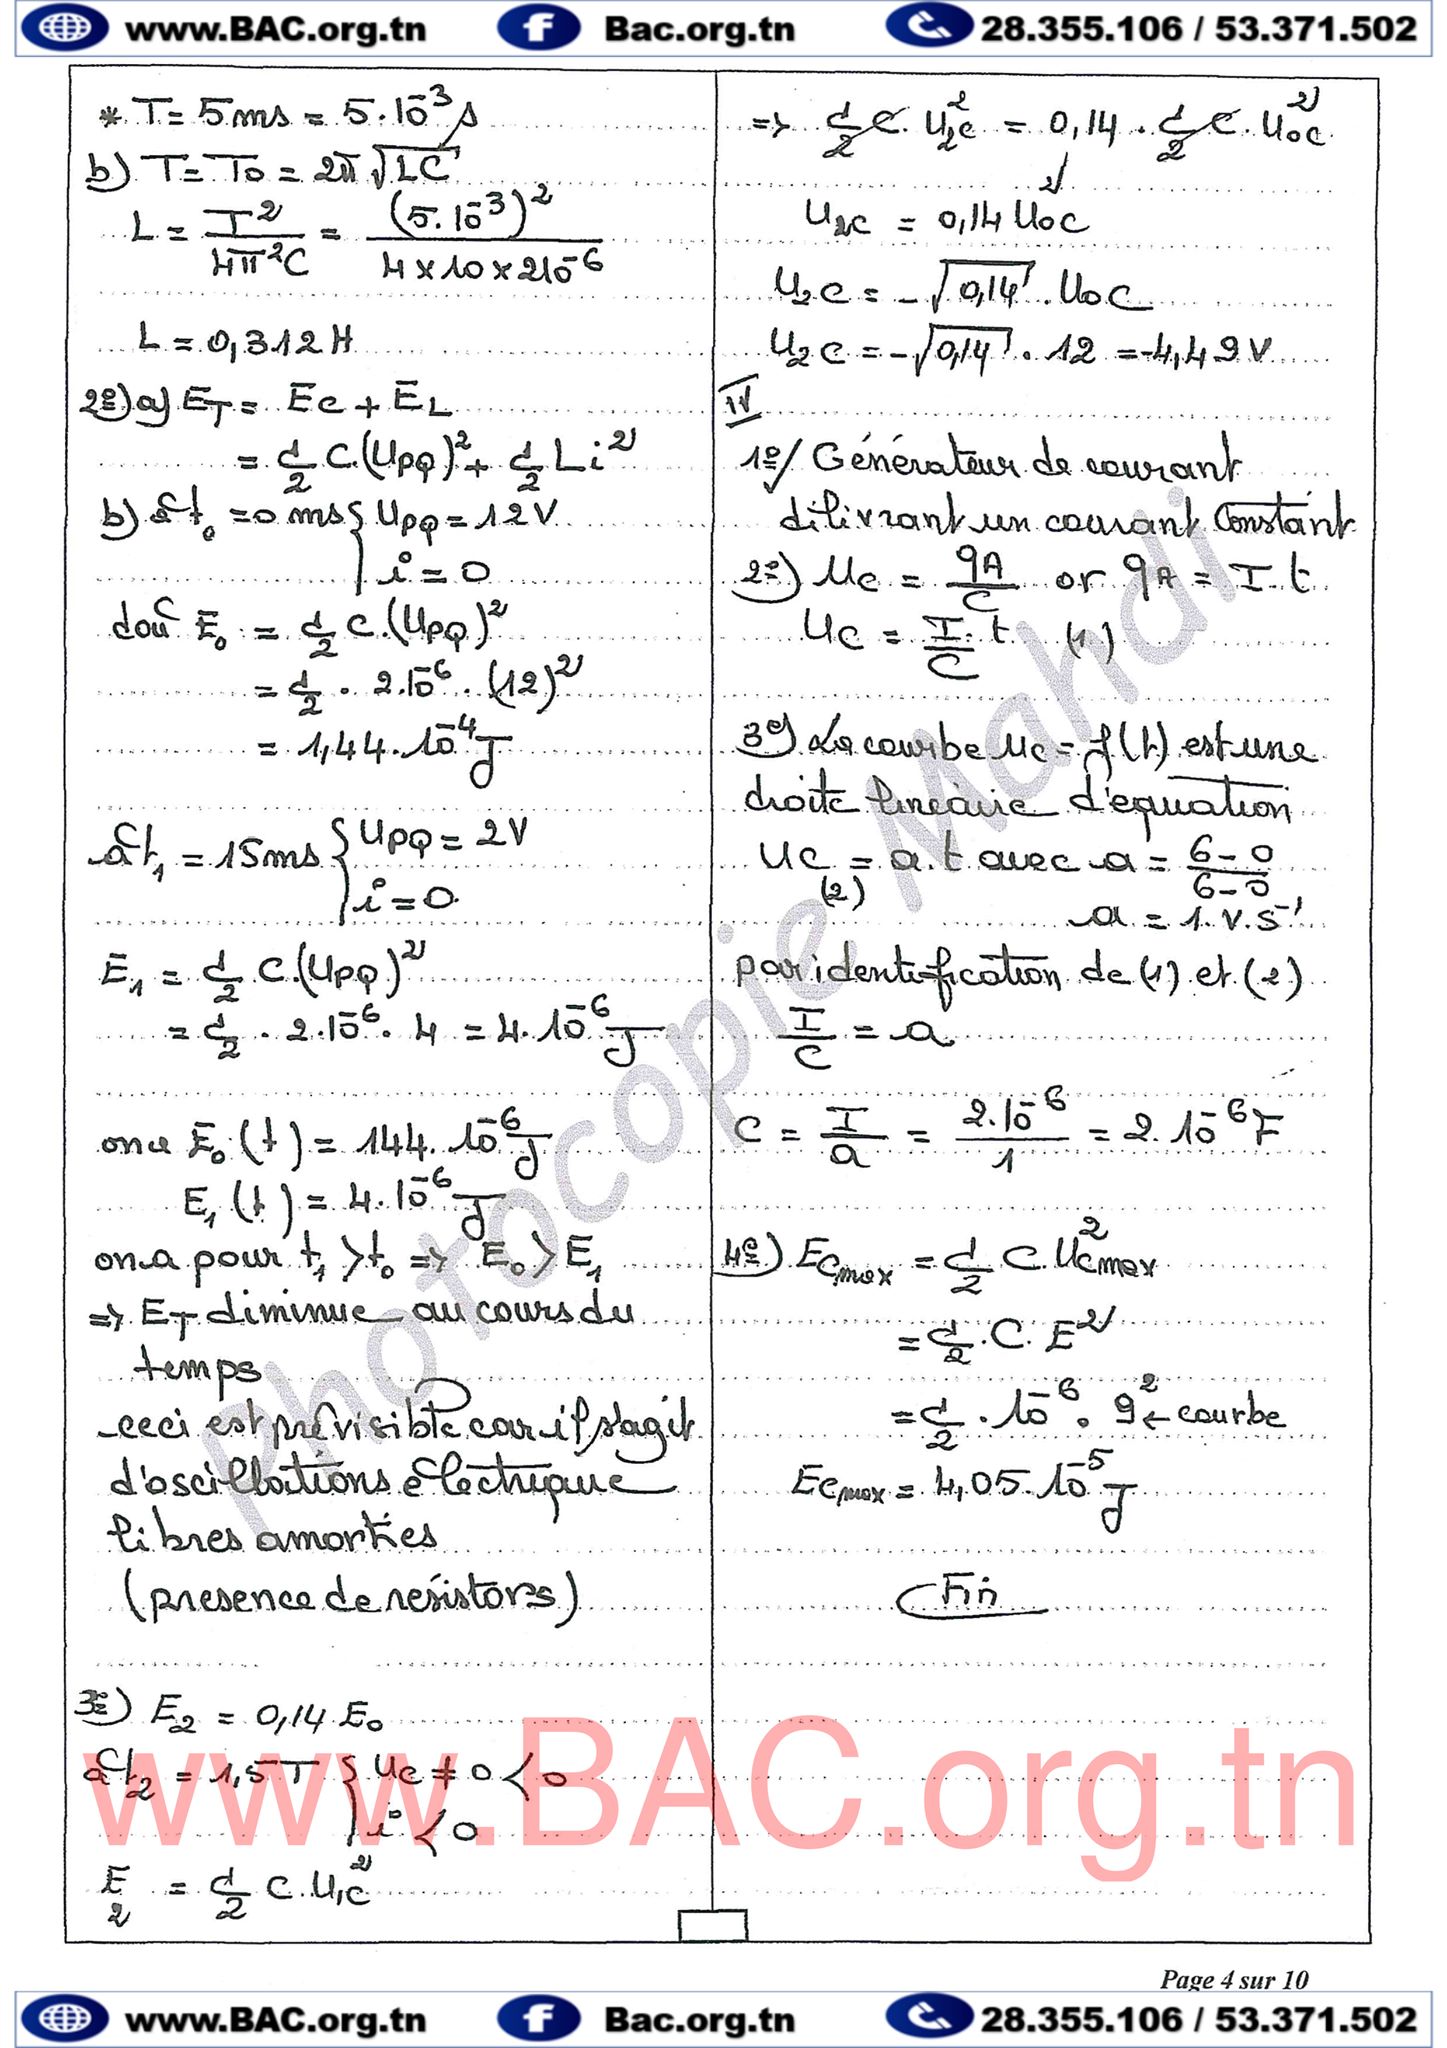 www.BAC.org.tn Bac.org.tn 28.355.106 / 53.371.502
* T = 5ms = 5.10⁻³ s
b) T = T₀ = 2π√LC
L = T² / 4π²C = (5.10⁻³)² / 4×10×210⁻⁶
L = 0,312 H
2º) a) E_T = Ec + E_L
= 1/2 C.(U_PQ)² + 1/2 L i²
b) à t₀ = 0 ms { U_PQ = 12V
i = 0
doù E₀ = 1/2 C.(U_PQ)²
= 1/2 . 2.10⁻⁶ . (12)²
= 1,44.10⁻⁴ J
à t₁ = 15ms { U_PQ = 2V
i = 0.
E₁ = 1/2 C.(U_PQ)²
= 1/2 . 2.10⁻⁶ . 4 = 4.10⁻⁶ J
ona E₀(t) = 144.10⁻⁶ J
E₁(t) = 4.10⁻⁶ J
on a pour t₁ > t₀ => E₀ > E₁
=> E_T diminue au cours du
temps
ceci est prévisible car il s'agit
d'oscillations électrique
libres amorties
(presence de resistors)
3º) E₂ = 0,14 E₀
à t₂ = 1,5T { Uc ≠ 0 < 0
i < 0
E₂ = 1/2 C U₁c²
=> 1/2 C. U₂c² = 0,14 . 1/2 C. U₀c²
U₂c² = 0,14 U₀c²
U₂c = -√0,14 . U₀c
U₂c = -√0,14 . 12 = -4,49 V
IV
1º/ Générateur de courant
délivrant un courant Constant
2º) Uc = qA / C or qA = I.t
Uc = I/C . t (1)
3º) La courbe Uc = f(t) est une
droite linéaire d'equation
Uc = a.t avec a = 6-0 / 6-0
(2)
a = 1.V.s⁻¹
par identification de (1) et (2)
I/C = a
C = I/a = 2.10⁻⁶ / 1 = 2.10⁻⁶ F
4º) Ecmax = 1/2 C Ucmax²
= 1/2 . C. E²
= 1/2 . 10⁻⁶ . 9² ← courbe
Ecmax = 4,05.10⁻⁵ J
Fin
Photocopie Mahdi
www.BAC.org.tn
Page 4 sur 10
www.BAC.org.tn Bac.org.tn 28.355.106 / 53.371.502